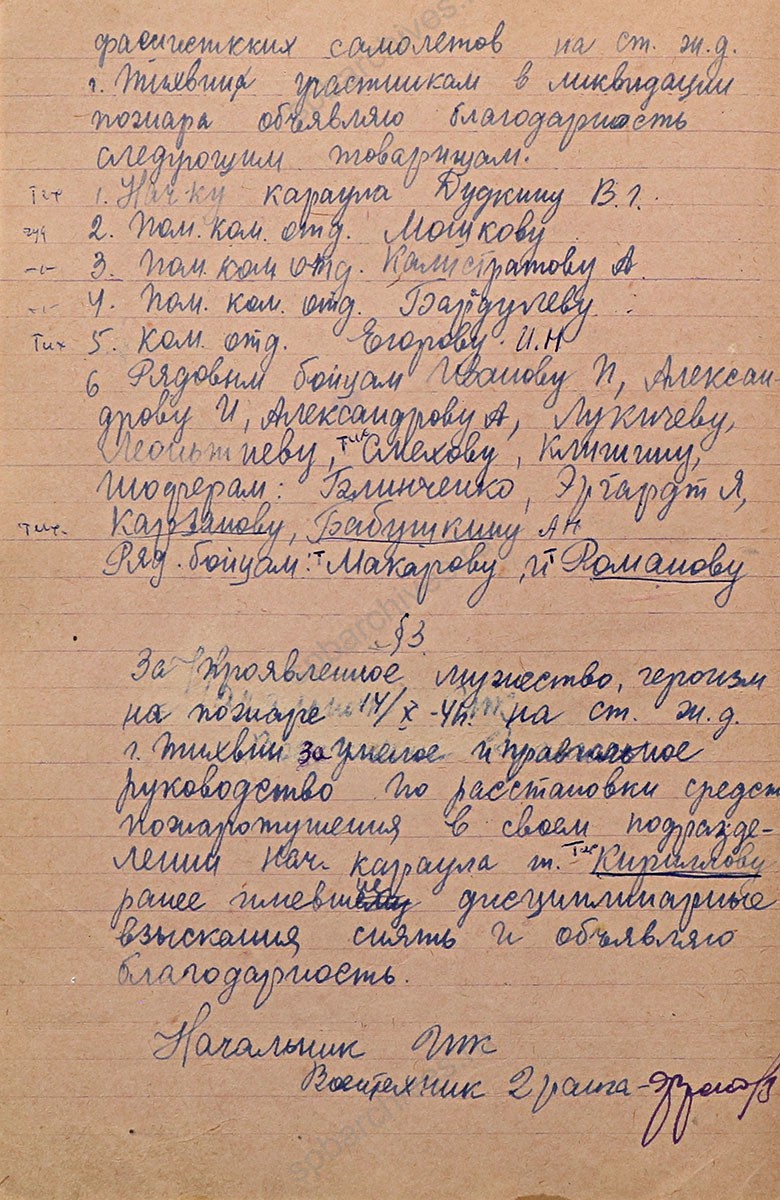 фасистких самолетов на ст. ж.д.
г. Тихвина участникам в ликвидации
пожара объявляю благодарность
следующим товарищам.
Тих 1. Нач-ку караула Дудкину В.г.
2. Пом. ком. отд. Мошкову
-"- 3. Пом. ком отд. Калистратову А.
-"- 4. Пом. ком. отд. Бардулеву
Тих 5. Ком. отд. Егорову И.Н
6 Рядовым бойцам Иванову П, Алексан-
дрову И, Александрову А, Лукичеву,
Леонтиеву, Тих Смехову, Клишину,
Шоферам: Блинченко, Эргардт Я,
Тих. Карзанову, Бабушкину АН
Ряд. бойцам: Т Макарову, и Т Романову
§ 3.
За проявленное мужество, героизм
на пожаре 14/X-41г. на ст. ж.д.
г. Тихвин за умелое и правильное
руководство по расстановки средст
пожаротушения в своем подразде-
лении Нач. караула т. Тих Кириллову
ранее имевшие дисциплинарные
взыскания снять и объявляю
благодарность.
Начальник
Воентехник 2 ранга -
spbarchives.